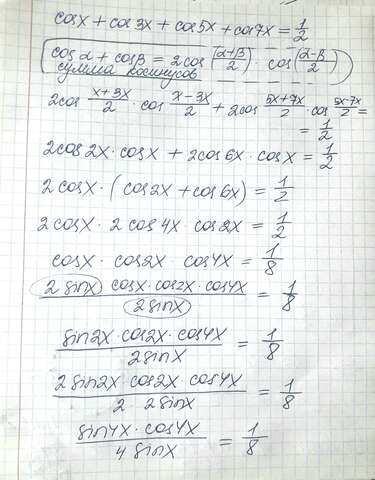 cosx + cos3x + cos5x + cos7x = 1/2
cosα + cosβ = 2cos (α+β)/2 · cos (α-β)/2
сумма косинусов
2cos (x+3x)/2 · cos (x-3x)/2 + 2cos (5x+7x)/2 · cos (5x-7x)/2 =
= 1/2
2cos2x · cosx + 2cos6x · cosx = 1/2
2cosx · (cos2x + cos6x) = 1/2
2cosx · 2cos4x · cos2x = 1/2
cosx · cos2x · cos4x = 1/8
(2sinx cosx · cos2x · cos4x)/(2sinx) = 1/8
(sin2x · cos2x · cos4x)/(2sinx) = 1/8
(2sin2x · cos2x · cos4x)/(2 · 2sinx) = 1/8
(sin4x · cos4x)/(4sinx) = 1/8